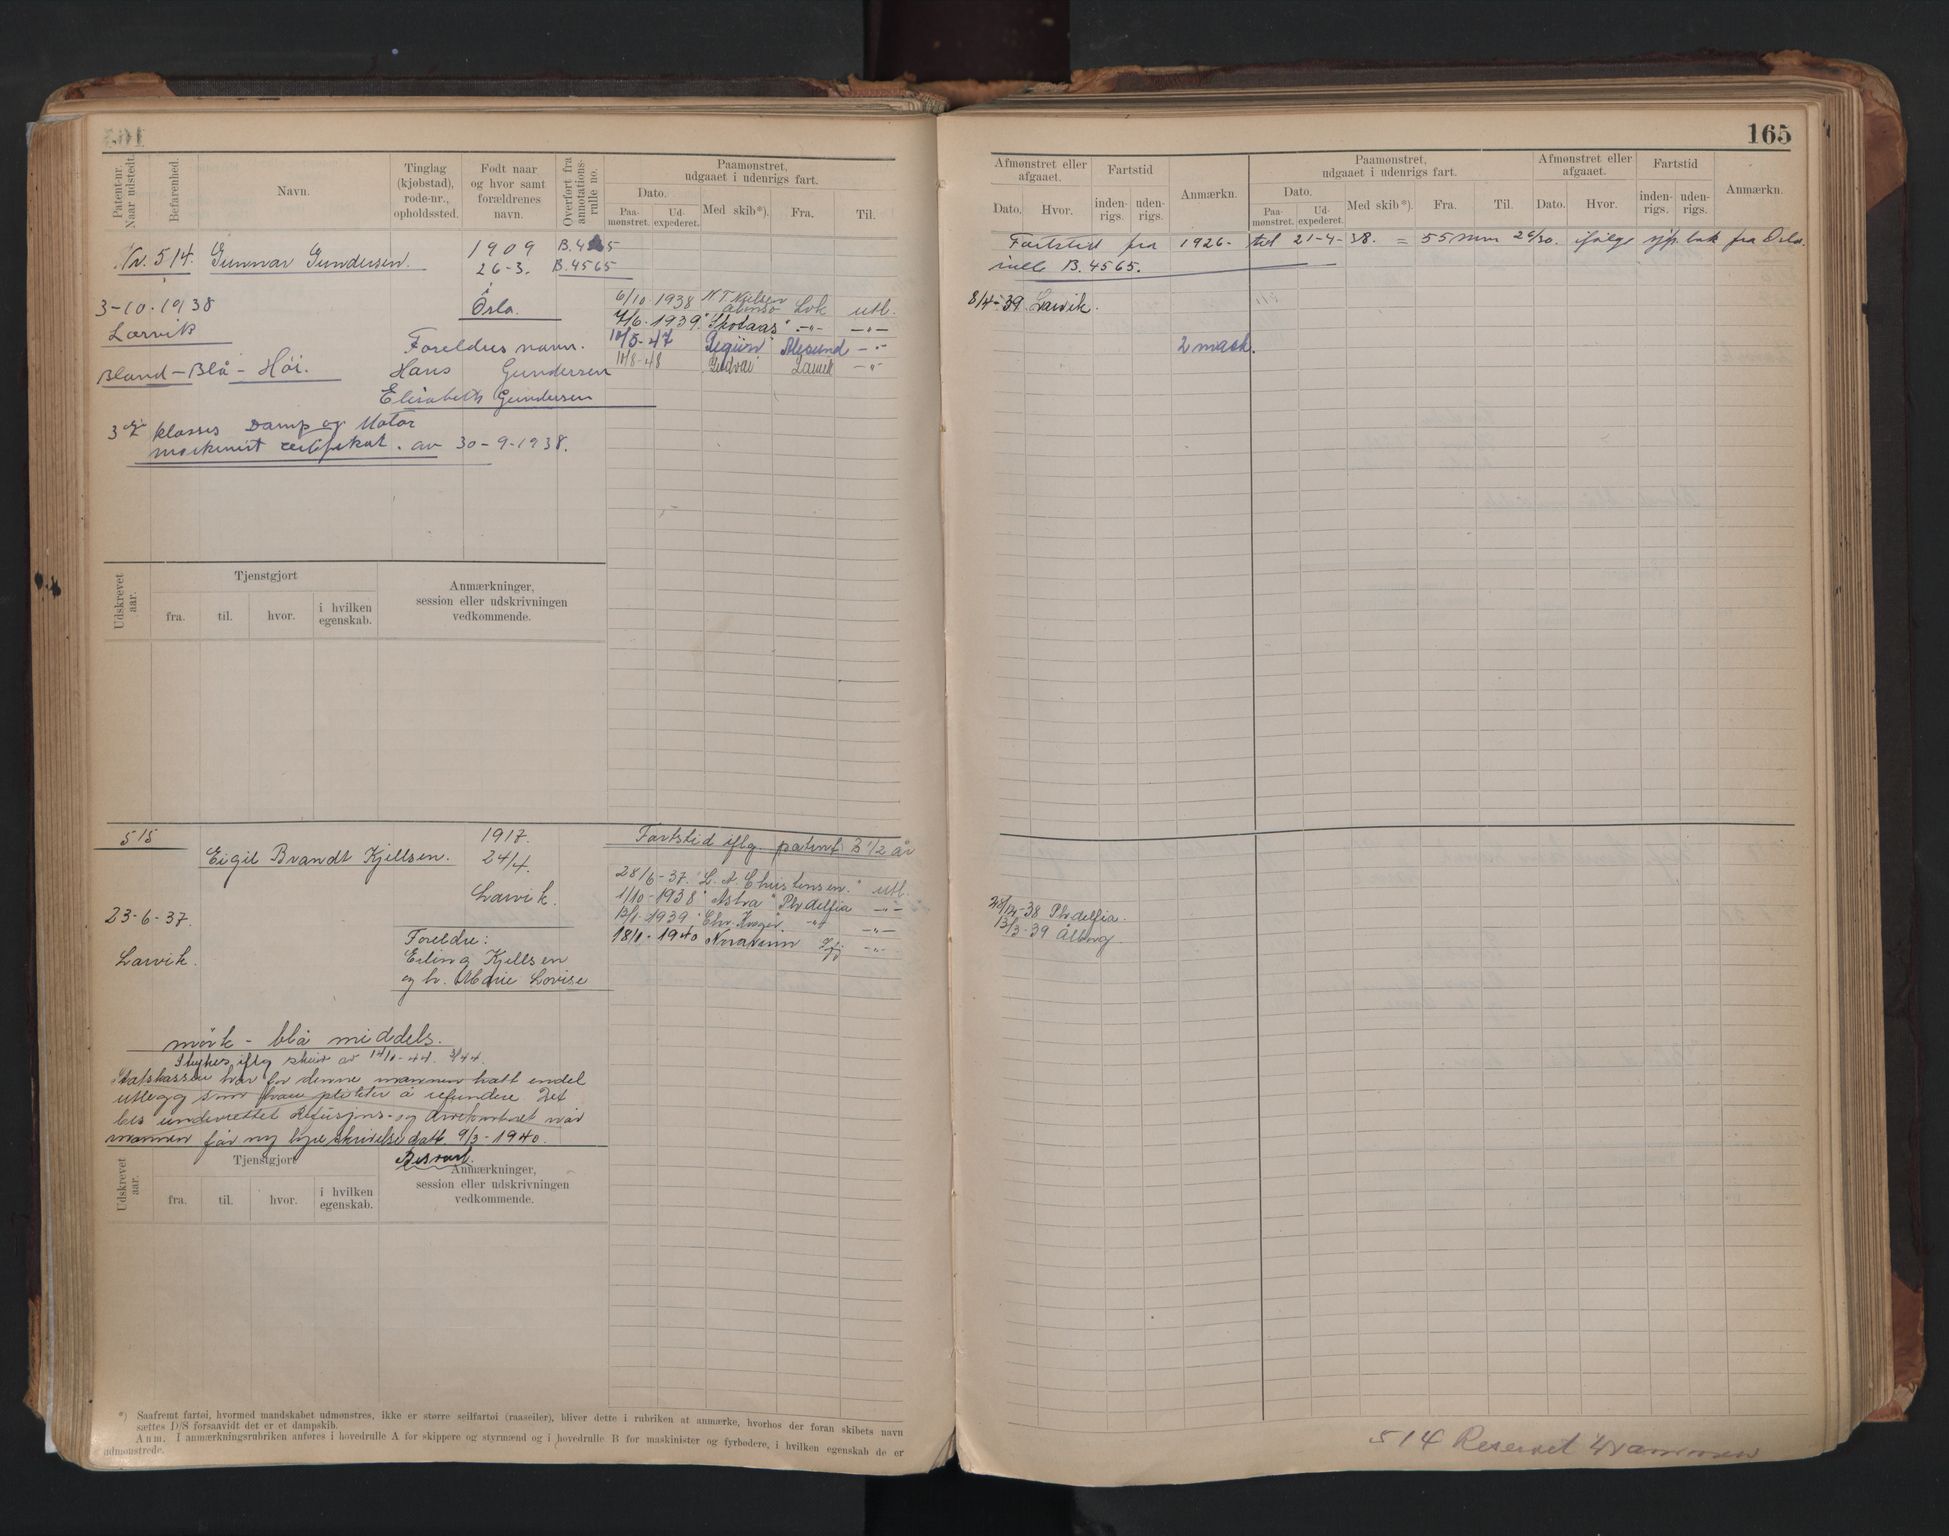 165
Patent-nr. Naar udstedt.
Befarenhed.
Navn.
Tinglag (kjøbstad), rode-nr., opholdssted.
Født naar og hvor samt forældrenes navn.
Overført fra annotations-rulle no.
Paamønstret, udgaaet i udenrigs fart.
Dato.
Paa-mønstret.
Ud-expederet.
Med skib*).
Fra.
Til.
Nr. 514. Gunnar Gundersen. 1909 B.4565
26-3. B.4565
3-10.1938 Oslo. 6/10.1938 N.T. Nielsen Alonso Lvk utl.
Larvik 7/6.1939 "Skotaas" -"- -"-
Foreldres navn. 10/5-47 Aalesund -"-
Bland-Blå-Høi. Hans Gundersen 10/8-48 Larvik -"-
Elisabeth Gundersen
3dje klasses Damp og Motor
maskinist certifikat. av 30-9-1938.
Udskrevet aar.
Tjenstgjort
fra.
til.
hvor.
i hvilken egenskab.
Anmærkninger, session eller udskrivningen vedkommende.
515 1917. Fartstid iflg. patent 3 1/2 år
Eigil Brandt Kjellsen. 24/4.
28/6-37. "L. A. Christensen." utl.
Larvik. 1/10-1938 "Astra" Phdelfia -"-
23-6-37. 13/1-1939 "Chr. Krogh" -"- -"-
Foreldre: 18/1-1940 Noravinn -"-
Larvik. Erling Kjellsen
og h. Marie Lovise
mörk - blå middels.
Strykes iflg skriv av
Statskassen har for denne mannen hatt endel
utlegg som han plikter å refundere Det
bes underrettet Refusjons- og kontoret når
mannen får ny hyre skrivelse datt. 9/3-1940.
Besvart.
Udskrevet aar.
Tjenstgjort
fra.
til.
hvor.
i hvilken egenskab.
Anmærkninger, session eller udskrivningen vedkommende.
*) Saafremt fartøi, hvormed mandskabet udmønstres, ikke er større seilfartøi (raaseiler), bliver dette i rubriken at anmærke, hvorhos der foran skibets navn
sættes D/S forsaavidt det er et dampskib.
Anm. I anmærkningsrubriken anføres i hovedrulle A for skippere og styrmænd og i hovedrulle B for maskinister og fyrbødere, i hvilken egenskab de er
udmønstrede.
Afmønstret eller afgaaet.
Dato.
Hvor.
Fartstid
inden-rigs.
uden-rigs.
Anmærkn.
Paamønstret, udgaaet i udenrigs fart.
Dato.
Paa-mønstret.
Ud-expederet.
Med skib*).
Fra.
Til.
Afmønstret eller afgaaet.
Dato.
Hvor.
Fartstid
inden-rigs.
uden-rigs.
Anmærkn.
Fartstid fra 1926- til 21-4-38. = 55 mnr 26/30. ifølge sjf. bok fra Oslo.
rulle B.4565.
8/4-39 Larvik.
2 mask.
28/12-38 Phdelfia.
13/3-39 Ålborg
514 Reservet